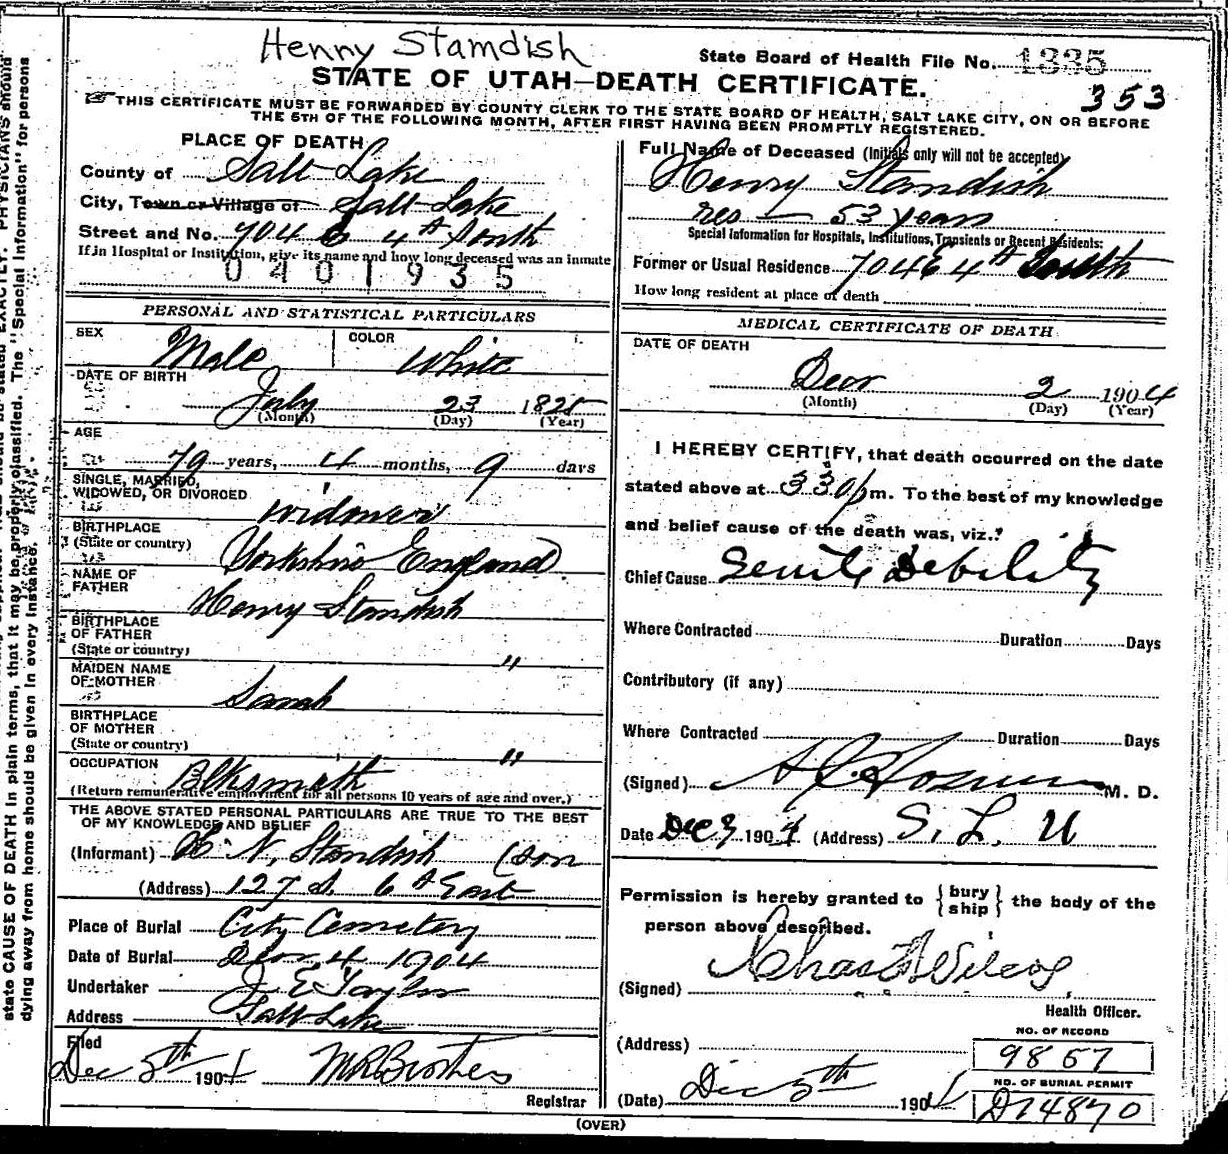 Henny Stamdish
State Board of Health File No. 1335
STATE OF UTAH—DEATH CERTIFICATE.
353
THIS CERTIFICATE MUST BE FORWARDED BY COUNTY CLERK TO THE STATE BOARD OF HEALTH, SALT LAKE CITY, ON OR BEFORE
THE 5TH OF THE FOLLOWING MONTH, AFTER FIRST HAVING BEEN PROMPTLY REGISTERED.
PLACE OF DEATH
County of Salt Lake
City, Town or Village of Salt Lake
Street and No. 704 E 4th South
If in Hospital or Institution, give its name and how long deceased was an inmate
0401935
PERSONAL AND STATISTICAL PARTICULARS
SEX Male COLOR White
DATE OF BIRTH
July 23 1825
(Month) (Day) (Year)
AGE
79 years, 4 months, 9 days
SINGLE, MARRIED,
WIDOWED, OR DIVORCED
widower
BIRTHPLACE
(State or country) Yorkshire England
NAME OF
FATHER Henry Standish
BIRTHPLACE
OF FATHER
(State or country) "
MAIDEN NAME
OF MOTHER Sarah
BIRTHPLACE
OF MOTHER
(State or country) "
OCCUPATION Blksmith
(Return remunerative employment for all persons 10 years of age and over.)
THE ABOVE STATED PERSONAL PARTICULARS ARE TRUE TO THE BEST
OF MY KNOWLEDGE AND BELIEF
(Informant) H. N. Standish (son
(Address) 127 S. 6th East
Place of Burial City Cemetery
Date of Burial Decr 4 1904
Undertaker J E Taylor
Address Salt Lake
Filed
Dec 5th 1904
Registrar
Full Name of Deceased (Initials only will not be accepted)
Henry Standish
res — 53 years
Special Information for Hospitals, Institutions, Transients or Recent Residents:
Former or Usual Residence 704 E 4th South
How long resident at place of death
MEDICAL CERTIFICATE OF DEATH
DATE OF DEATH
Decr 2 1904
(Month) (Day) (Year)
I HEREBY CERTIFY, that death occurred on the date
stated above at 330 p m. To the best of my knowledge
and belief cause of the death was, viz.:
Chief Cause Senile Debility
Where Contracted Duration Days
Contributory (if any)
Where Contracted Duration Days
(Signed) M. D.
Date Dec 3 1904 (Address) S. L. U
Permission is hereby granted to { bury ship } the body of the
person above described.
(Signed) Chas A Wilcox
Health Officer.
(Address)
NO. OF RECORD
9857
(Date) Dec 5th 1904
NO. OF BURIAL PERMIT
D14870
(OVER)
state CAUSE OF DEATH in plain terms, that it may be properly classified. The "Special Information" for persons
dying away from home should be given in every instance.